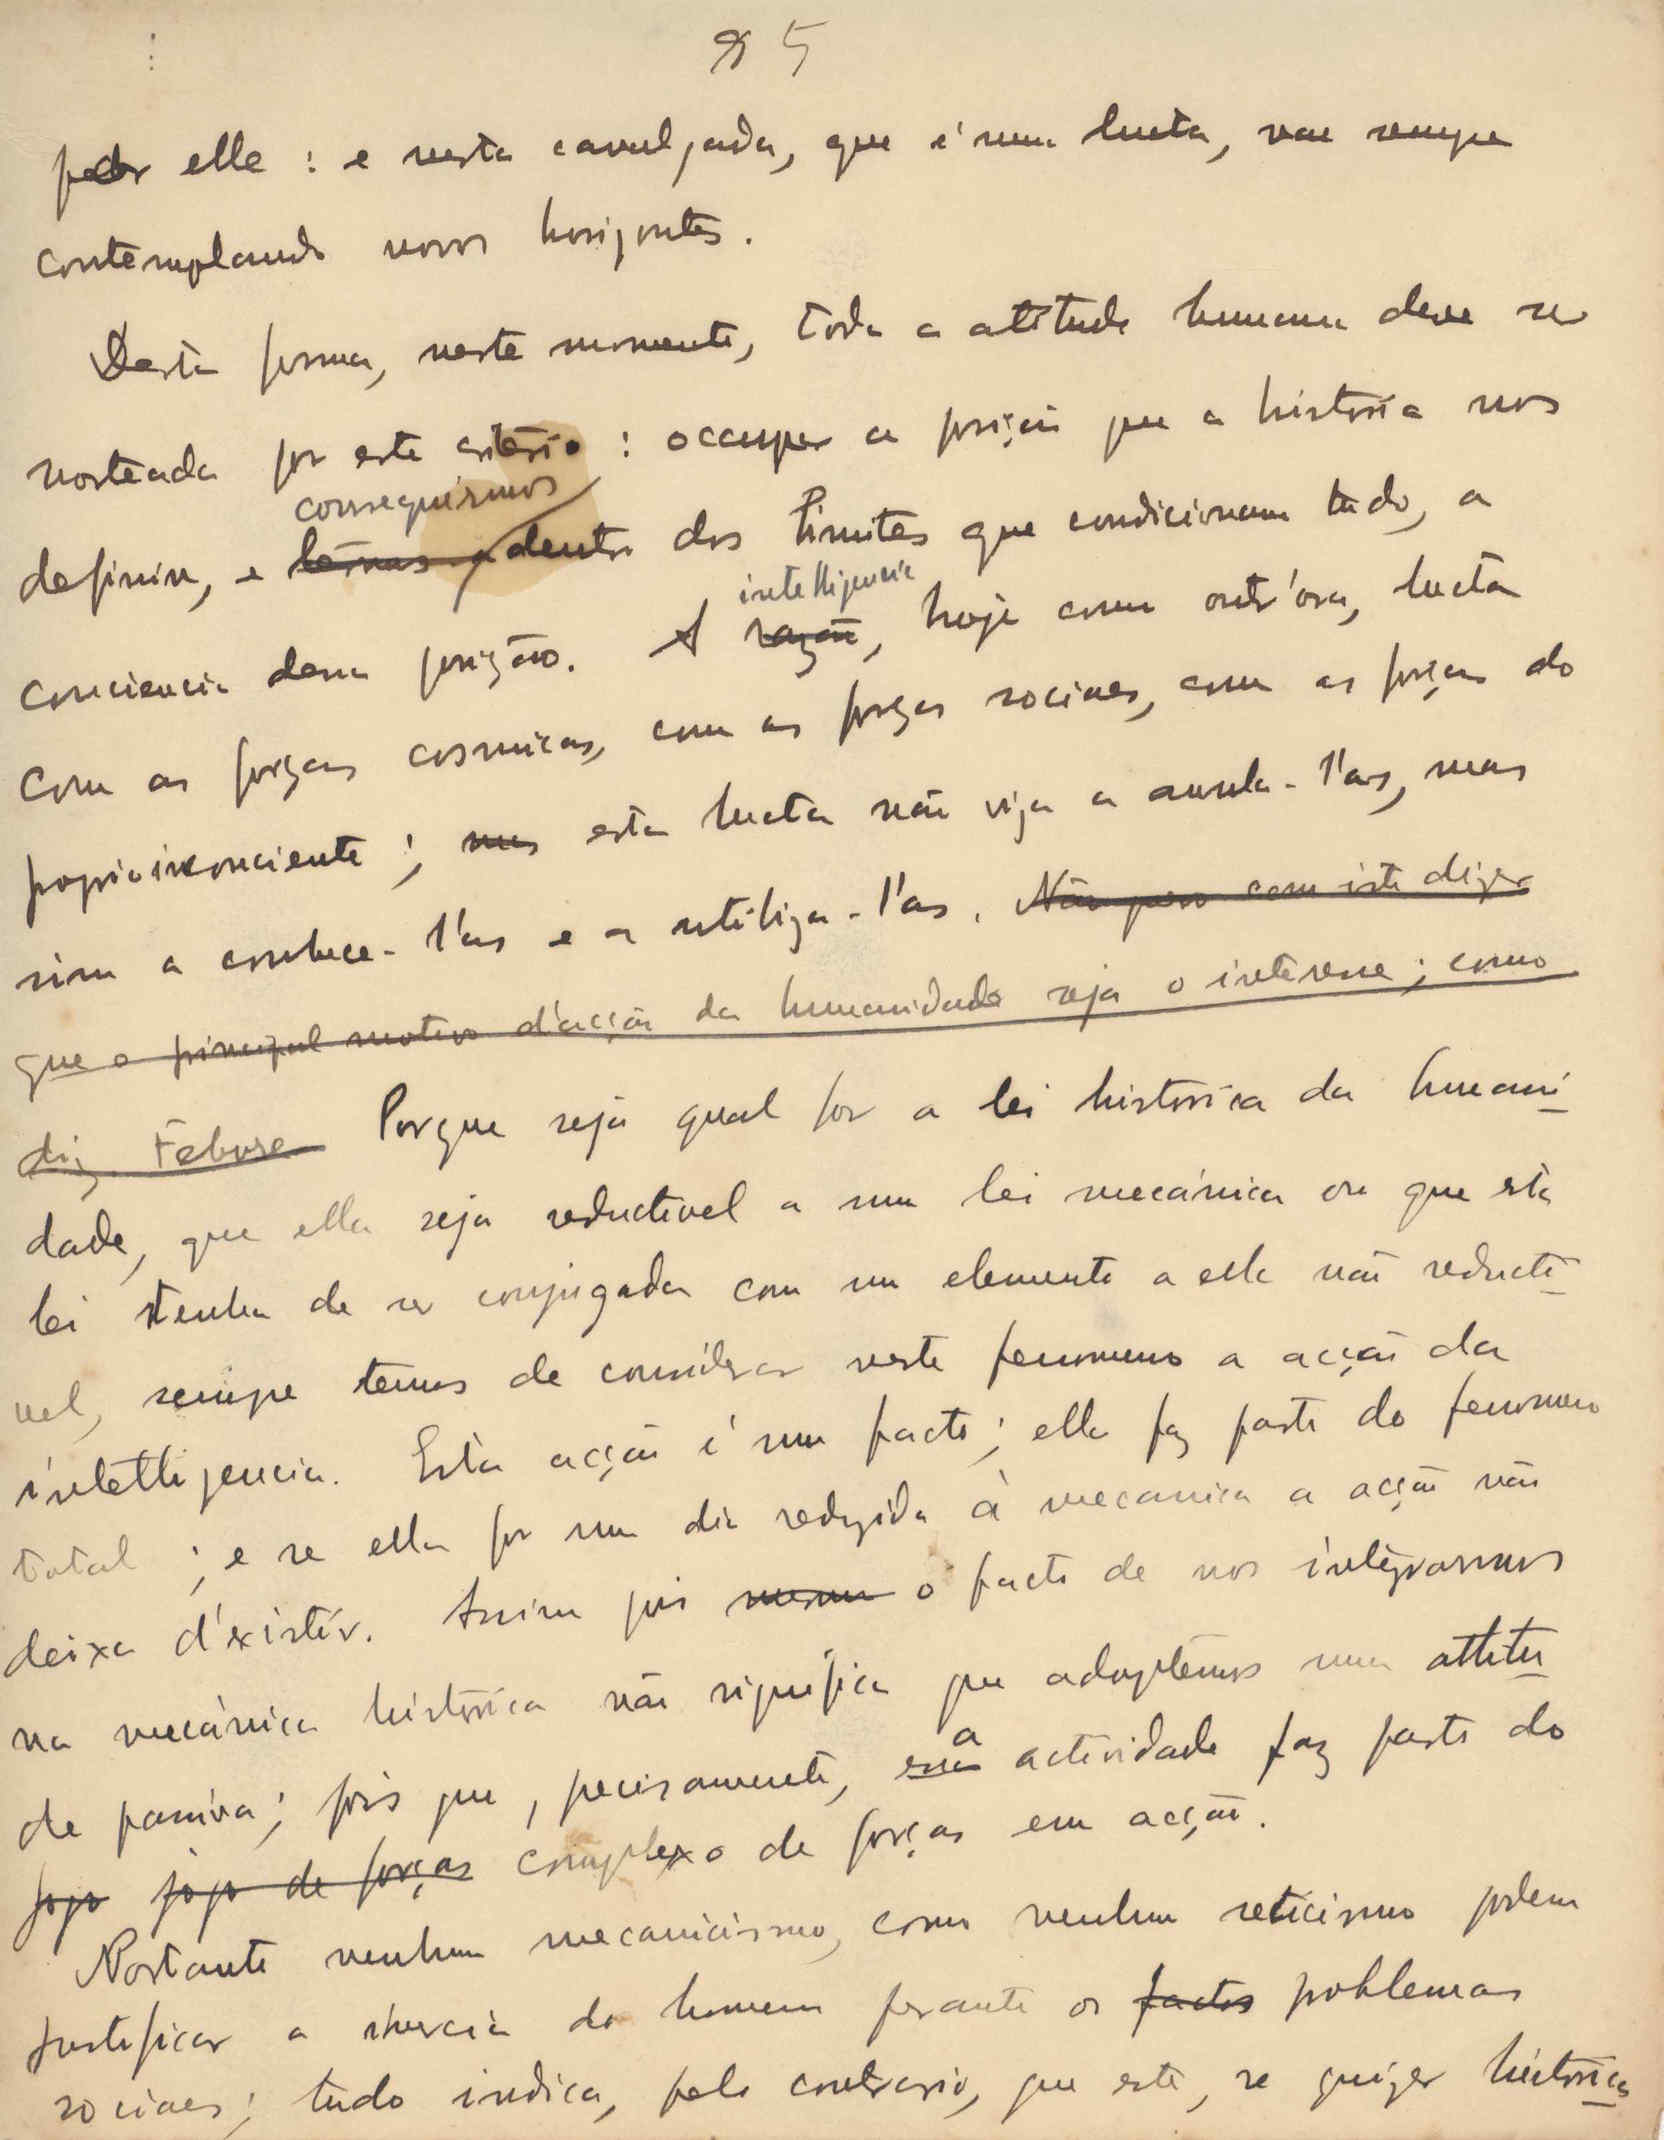 5
por elle : e nesta cavalgada, que é uma lucta, vae sempre
contemplando novos horizontes.
Desta forma, neste momento, toda a attitude humana deve ser
norteada por este criterio : occupar a posição que a historia nos
conseguirmos
definir, e termos dentro dos limites que condicionam tudo, a
intelligencia
conciencia dessa posição. A razão, hoje como outr'ora, lucta
com as forças cosmicas, com as forças sociaes, com as forças do
proprio inconciente ; mas esta lucta não visa a annula-l'as, mas
sim a conhece-l'as e a utiliza-l'as. Não quero com isto dizer
que o principal motivo d'acção da humanidade seja o interesse ; como
diz Porque seja qual for a lei historica da humani-
dade, que ella seja reductivel a uma lei mecánica ou que esta
lei tenha de ser conjugada com um elemento a ella não reducti-
vel, sempre temos de considerar neste fenomeno a acção da
intelligencia. Esta acção é um facto ; ella faz parte do fenomeno
total ; e se ella for um dia reduzida á mecanica a acção não
deixa d'existir. Assim pois mesmo o facto de nos integrarmos
na mecánica historica não significa que adoptemos uma attitu-
de passiva ; pois que, precisamente, essa a actividade faz parte do
jogo jogo de forças complexo de forças em acção.
Portanto nenhum mecanicismo, como nenhum scticismo podem
justificar a inercia do homem perante os factos problemas
sociaes ; tudo indica, pelo contrario, que este, se quizer historica-